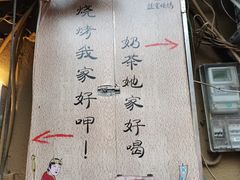 烧烤我家好呷！
奶茶她家好喝